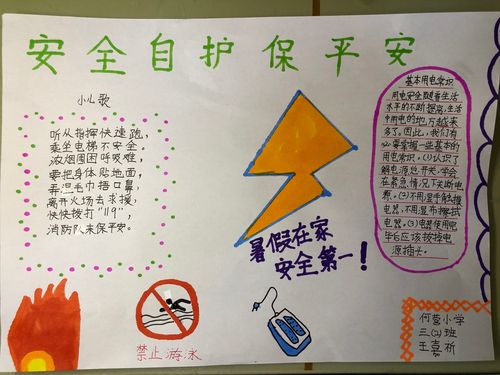 安全自护保平安
小儿歌
听从指挥快速跑,
乘坐电梯不安全。
浓烟围困呼吸难,
要把身体贴地面,
弄湿毛巾捂口鼻,
离开火场去求援,
快快拨打“119”,
消防队来保平安。
基本用电常识
用电安全随着生活
水平的不断提高,生活
中用电的地方越来
多了。因此,我们有
必要掌握一些基本的
用电常识。(1)认识了
解电源总开关,学会
在紧急情况下关断电
源。(2)不用湿手触摸
电器,不用湿布擦拭
电器。(3)电器使用完
毕后应该拔掉电
源插头。
暑假在家
安全第一!
禁止游泳
何营小学
三(2)班
王嘉祈